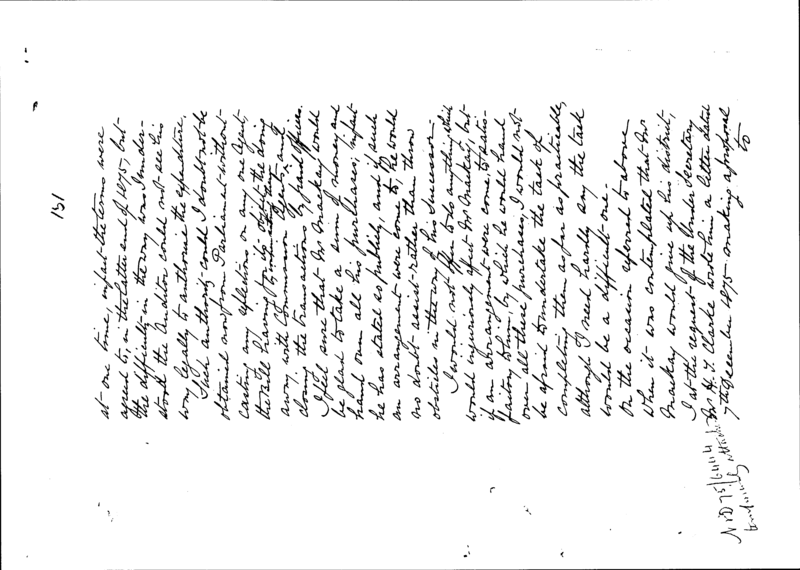 151
at one time, in fact the terms were
agreed to, in the latter end of 1875, but
the difficulty in the way was I under-
stood the Auditor could not see his
way legally to authorise the expenditure,
Such authority could I doubt not be
obtained now from Parliament without
casting any reflections on any one Agent,
the Bill having for its object the doing
away with Commission Agents, and
closing the transactions by paid officers.
I feel sure that Mr Mackay would
be glad to take a sum of money and
hand over all his purchases; in fact
he has stated as publicly, and if such
an arrangement were come to, he would
no doubt assist rather than throw
obstacles in the way of his successor.
I would not offer to do anything which
would injuriously affect Mr Mackay, but
if an arrangement were come to satis-
factory to him, by which he would hand
over all these purchases, I would not
be afraid to undertake the task of
completing them as far as practicable,
although I need hardly say the task
would be a difficult one.
On the occasion referred to above
when it was contemplated that Mr
Mackay would give up his district,
I at the request of the Under Secretary
Mr H. T. Clarke wrote him a letter dated
7th December 1875 making a proposal
to